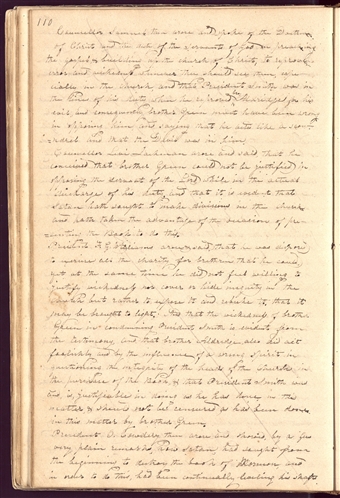 110
Counsellor then arose and spoke of the Death
of Christ and the duty of the servants of God in preaching
the gospel & building up the church of Christ, to reprove
error and wickedness whenever they should see them, espe-
cially in the church and that President Smith was in
the line of his duty when he reproved for his
sins, and consequently brother Green must have been wrong
in opposing him and saying that he acts like a scoun-
drel and that the Devil was in him.
Counsellor arose and said that he
conceived that brother Green could not be justified in
opposing the servant of the Lord while in the actual
discharge of his duty, and that it is evident that
Satan hath sought to make divisions in the church
and hath taken the advantage of the occasion of pre-
senting the Book to do this.
President F. G. Williams arose & said, that he was disposed
to exercise all the charity for brethren that he could,
yet at the same time he did not feel willing to
justify wickedness nor cover or hide iniquity in the
church but rather to expose it and rebuke it, that it
may be brought to light; & that the wickedness of brother
Green in condemning President Smith is evident from
the testimony, and that brother Aldridge also did act
foolishly and by the influence of a wrong Spirit in
questioning the integrity of the heads of the church, in
the purchase of the Book, & that President Smith was
and is justifiable in doing as he has done, in this
matter & should not be censured as has been done
in this matter by brother Green.
President O. Cowdery then arose and showed, by a few
very plain remarks, how Satan had sought from
the beginning to destroy the book of Mormon, and
in order to do this had been continually his shafts